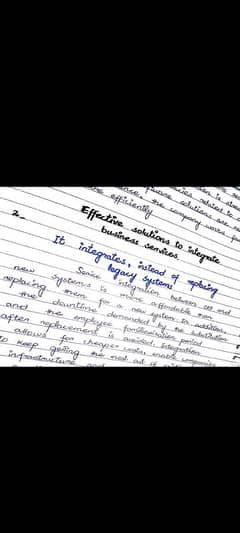 the company works
efficiently
2-
Effective solutions to integrate
business services
It integrates, instead of replacing
legacy systems
Since integration between old and
new systems is more affordable than
replacing them for a new system. In addition,
the downtime demanded by the substitution
and the employee familiarization period
after replacement is avoided. Integration
allows for cheaper costs, enable companies
to keep getting the most out of
infrastructure and